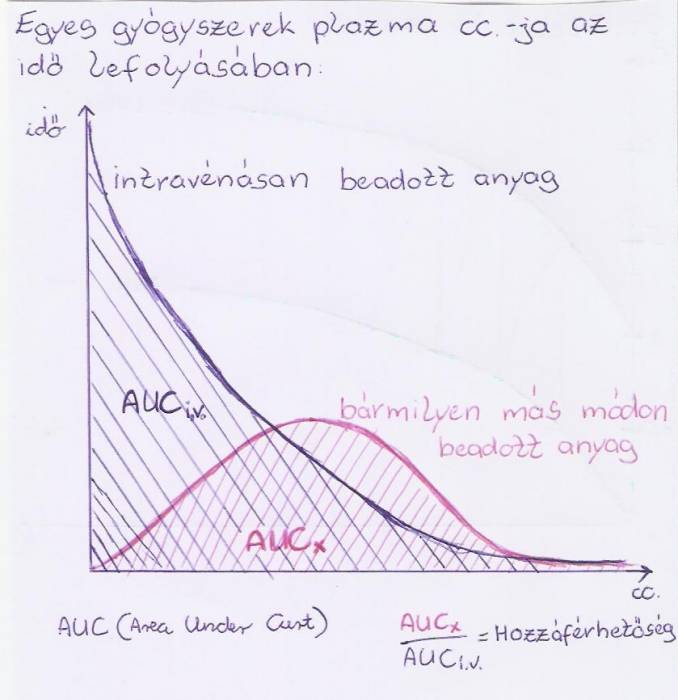 Egyes gyógyszerek plazma cc.-ja az
idő lefolyásában:
idő
intravénásan beadott anyag
AUCi.v.
bármilyen más módon
beadott anyag
AUCx
cc.
AUC (Area Under Curt)
AUCx
AUCi.v.
= Hozzáférhetőség